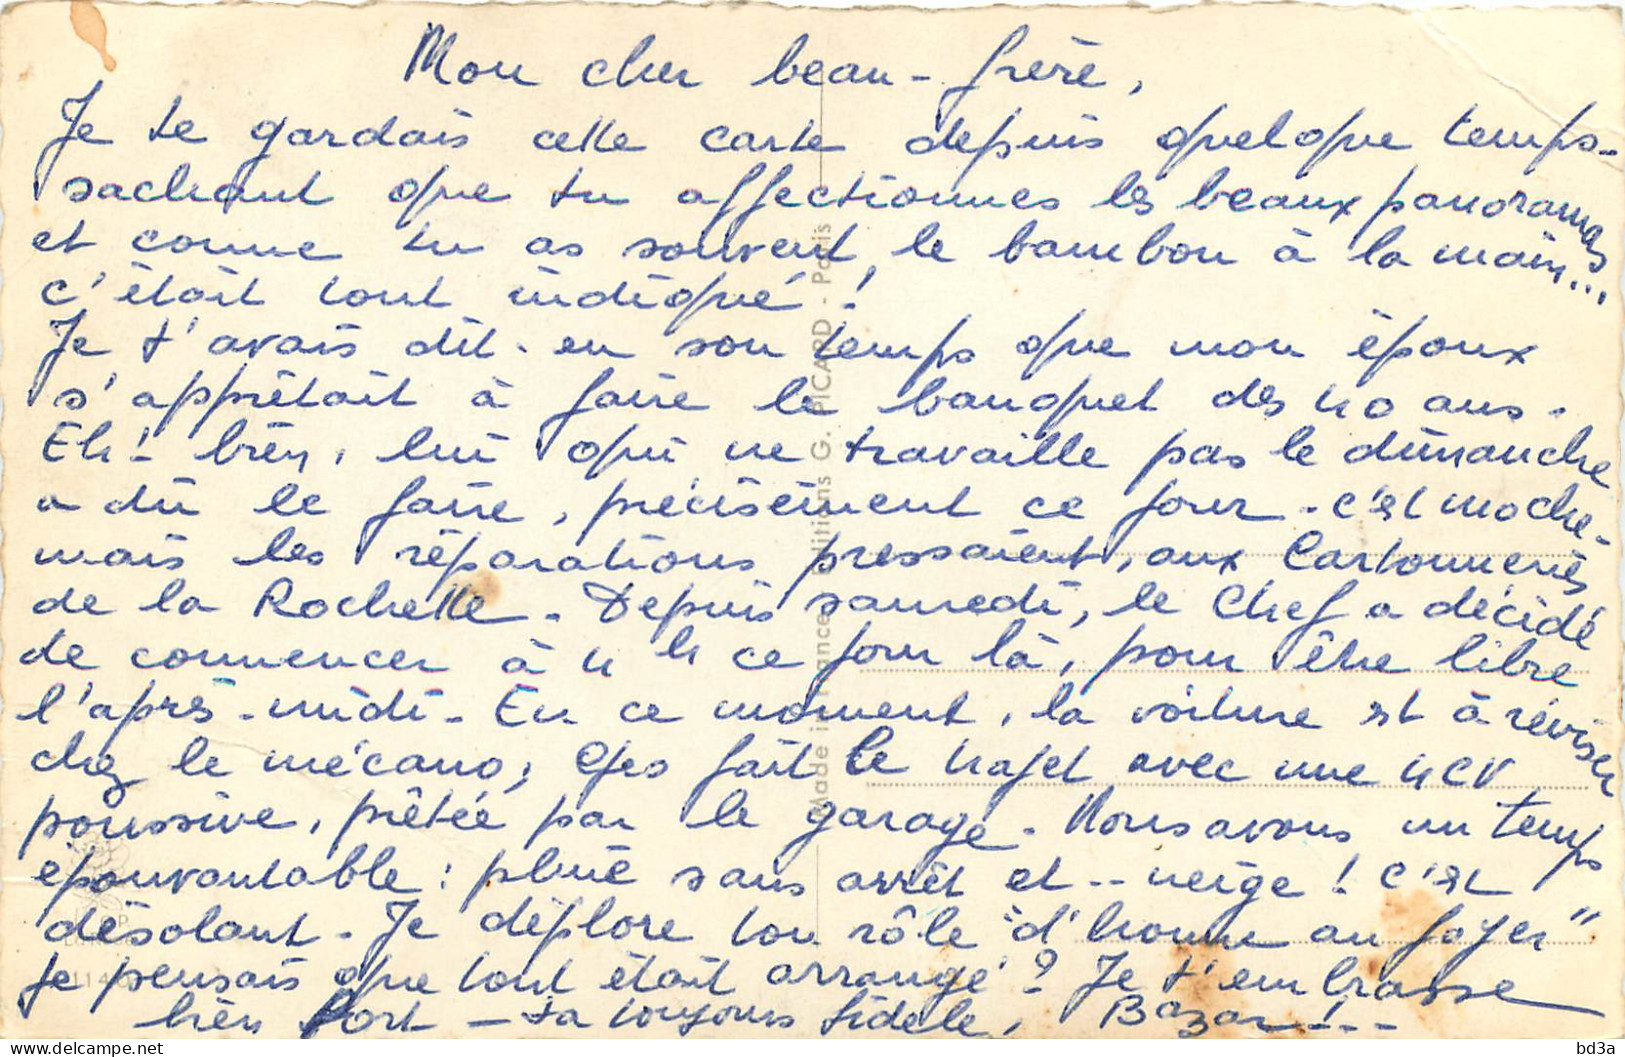 Mon cher beau-frère,
Je te gardais cette carte depuis quelque temps-
sachant que tu affectionnes les beaux panoramas
et comme tu as souvent le bambou à la main...
c'était tout indiqué !
Je t'avais dit - en son temps que mon époux
s'apprêtait à faire le banquet des 40 ans.
Eh! bien, lui qui ne travaille pas le dimanche
a dû le faire, précisément ce jour - c'est moche -
mais les réparations pressaient, aux Cartonneries
de la Rochette - Depuis samedi, le Chef a décidé
de commencer à 4 h ce jour là, pour être libre
l'après-midi - En ce moment, la voiture est à réviser
chez le mécano, fait le trajet avec une 4 CV
poussive, prêtée par le garage - Nous avons un temps
épouvantable : pluie sans arrêt et -- neige ! c'est
désolant - Je déplore ton rôle "d'homme au foyer"
je pensais que tout était arrangé ? Je t'embrasse
bien fort - ta toujours fidèle, Bazar ! ---
Made in France Editions G. PICARD - Paris
bd3a